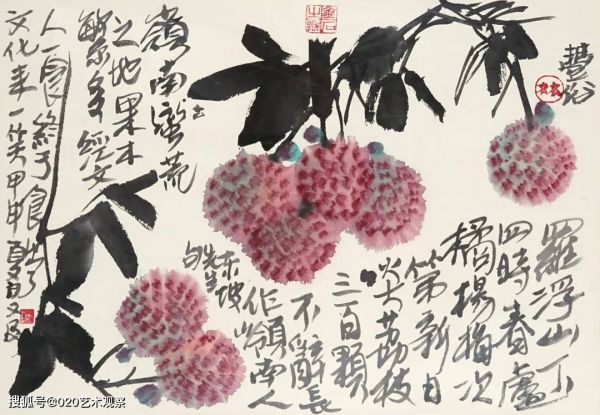 豐
羅浮山下
四時春盧
橘楊梅次
第新日
啖荔枝
三百顆
不辭長
作嶺南人
东坡
先生
句
嶺南蠻荒
之地果木
繁多經文
人一食終于食出了
文化来一笑甲申
搜狐号@020艺术观察